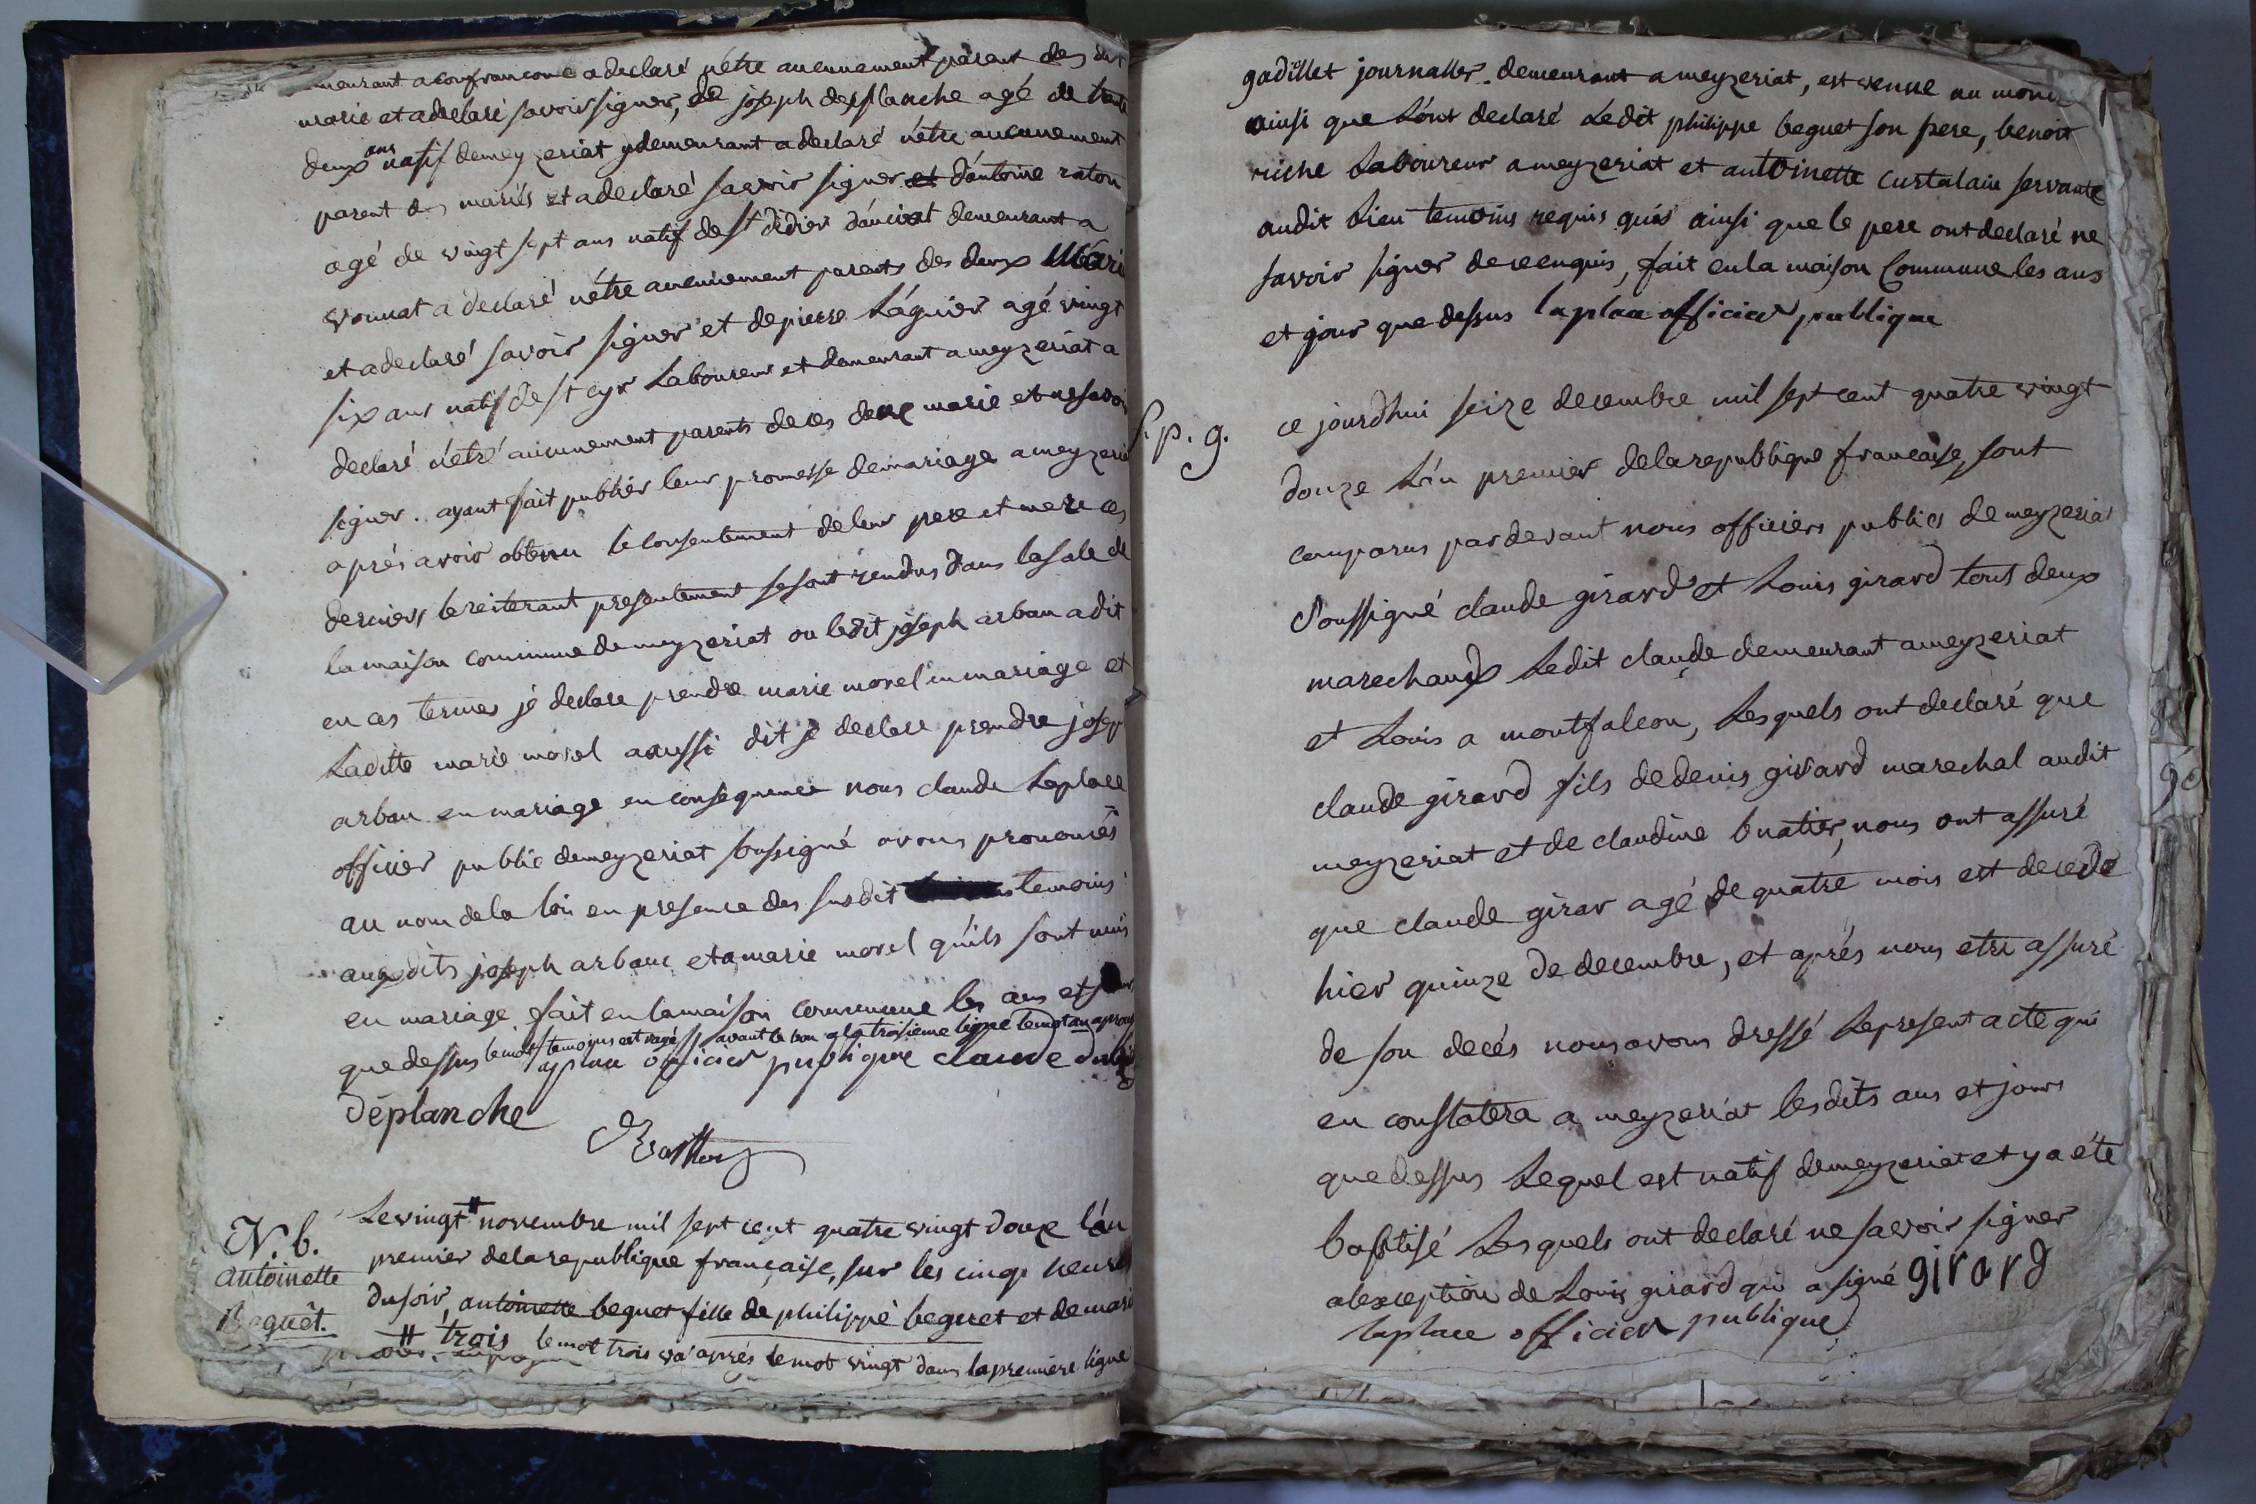 meurant a confrancone a declaré nétre aucunement parent des dit
marié et a declaré savoir signer, de joseph desplanche agé de trente
deux ans natif de meyzeriat y demeurant a declaré n'étre aucunement
parent des mariés et a declaré savoir signer et d'antoine raton
agé de vingt sept ans natif de st didier d'auciat demeurant a
vonnat a declaré nétre aucunement parents des deux Marié
et a declaré savoir signer et de pierre Láguier agé vingt
six ans natif de st cyr Laboureur et demeurant a meyzeriat a
declaré nétré aucunement parents de ces deux marié et ne savoir
signer. ayant fait publier leur promesse de mariage a meyzeriat
aprés avoir obtenu le consentement de leur pere et mere ces
derniers le reiterant presentement se sont rendus dans la sale de
la maison commune de meyzeriat ou ledit joseph arban a dit
en ces termes je declare prendre marie morel en mariage et
Laditte marie morel aussi dit je declare prendre joseph
arban en mariage en consequence nous claude Laplace
officier public de meyzeriat soussigné avons prononcés
au nom de la loi en presence des susdit temoins
auxdits joseph arbanc et a marie morel qu'ils sont unis
en mariage fait en la maison commune les ans et jour
que dessus le mot temoins est rayé avant le bon a la troisieme ligne le mot an aprouvé
laplace officier publique claude
Déplanche
Ratton
N. b.
antoinette
Beguêt.
Le vingt # novembre mil sept cent quatre vingt douze l'án
premier de la republique française, sur les cinqs heures
du soir, antoinette beguet fille de philippe beguet et de marie
# trois le mot trois va aprés le mot vingt dans la premiere ligne
gadillet journallier demeurant a meyzeriat, est venue au monde
ainsi que L'ont declaré Ledit philippe beguet son pere, benoit
riche Laboureur a meyzeriat et antoinette curtalain servante
audit Lieu temoins requis quis ainsi que le pere ont declaré ne
savoir signer de ce enquis, fait en la maison Commune les ans
et jour que dessus laplace officier publique
S. p. g.
ce jourdhui seize decembre mil sept cent quatre vingt
douze L'án premier de la republique francaise, sont
comparus par devant nous officiers publics de meyzeriat
Soussigné claude girard et Louis girard tous deux
marechaux Ledit claude demeurant a meyzeriat
et Louis a montfalcon, Lesquels ont declaré que
claude girard fils de denis girard marechal audit
meyzeriat et de claudine buatier, nous ont assuré
que claude girar agé de quatre mois est decedé
hier quinze de decembre, et aprés nous etre assuré
de son decés nous avons dressé Le present acte qui
en constatera a meyzeriat lesdits ans et jours
que dessus Lequel est natif de meyzeriat et y a éte
baptisé Lesquels ont declaré ne savoir signer
alexception de Louis girard qui a signé girard
laplace officier publique